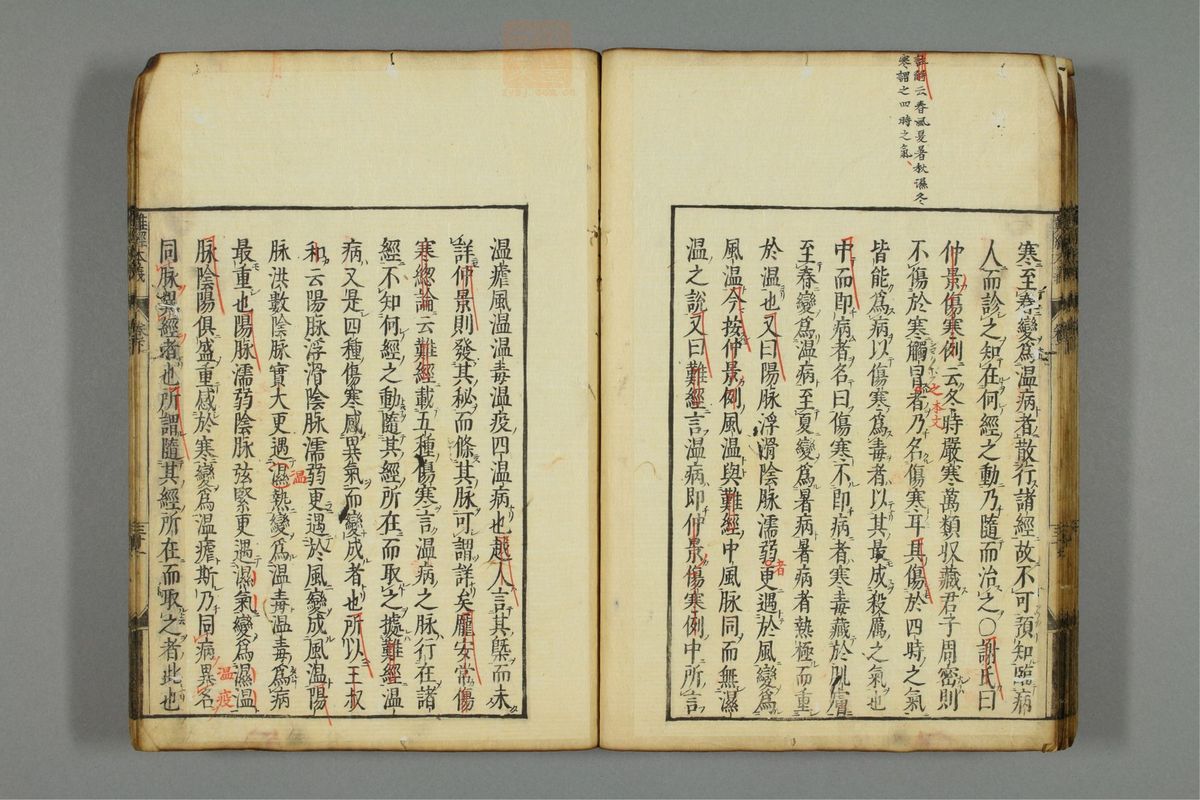 註解云春風夏暑秋濕冬
寒謂之四時之氣
寒至春變爲温病者散行諸經故不可預知臨病
人而診之知在何經之動乃隨而治之○謝氏曰
仲景傷寒例云冬時嚴寒萬類収藏君子周密則
不傷於寒觸冒者乃名傷寒耳其傷於四時之氣
之本文
皆能爲病以傷寒爲毒者以其最成殺厲之氣也
中而即病者名曰傷寒不即病者寒毒藏於肌膚
至春變爲温病至夏變爲暑病暑病者熱極而重
於温也又曰陽脉浮滑陰脉濡弱更遇於風變爲
者
風温今按仲景例風温與難經中風脉同而無濕
温之説又曰難經言温病即仲景傷寒例中所言
温瘧風温温毒温疫四温病也越人言其槩而未
詳仲景則發其秘而條其脉可謂詳矣龐安常傷
寒緫論云難經載五種傷寒言温病之脉行在諸
經不知何經之動隨其經所在而取之據難經温
病又是四種傷寒感異氣而變成者也所以王叔
和云陽脉浮滑陰脉濡弱更遇於風變成風温陽
脉洪數陰脉實大更遇濕熱變爲温毒温毒爲病
温
最重也陽脉濡弱陰脉弦緊更遇濕氣變爲濕温
脉陰陽俱盛重感於寒變爲温瘧斯乃同病異名
温疫
同脉異經者也所謂隨其經所在而取之者此也
難經本義